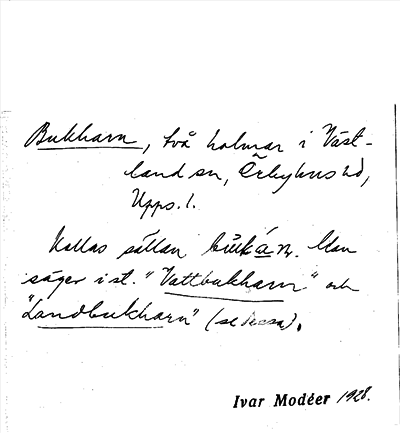 Bukharn, två holmar i Väst-
land sn, Örbyhus hd,
Upps. l.
Kallas sällan
säger i st. "Vattbukharn" och
"Landbukharn" (se dessa).
Ivar Modéer 1928.